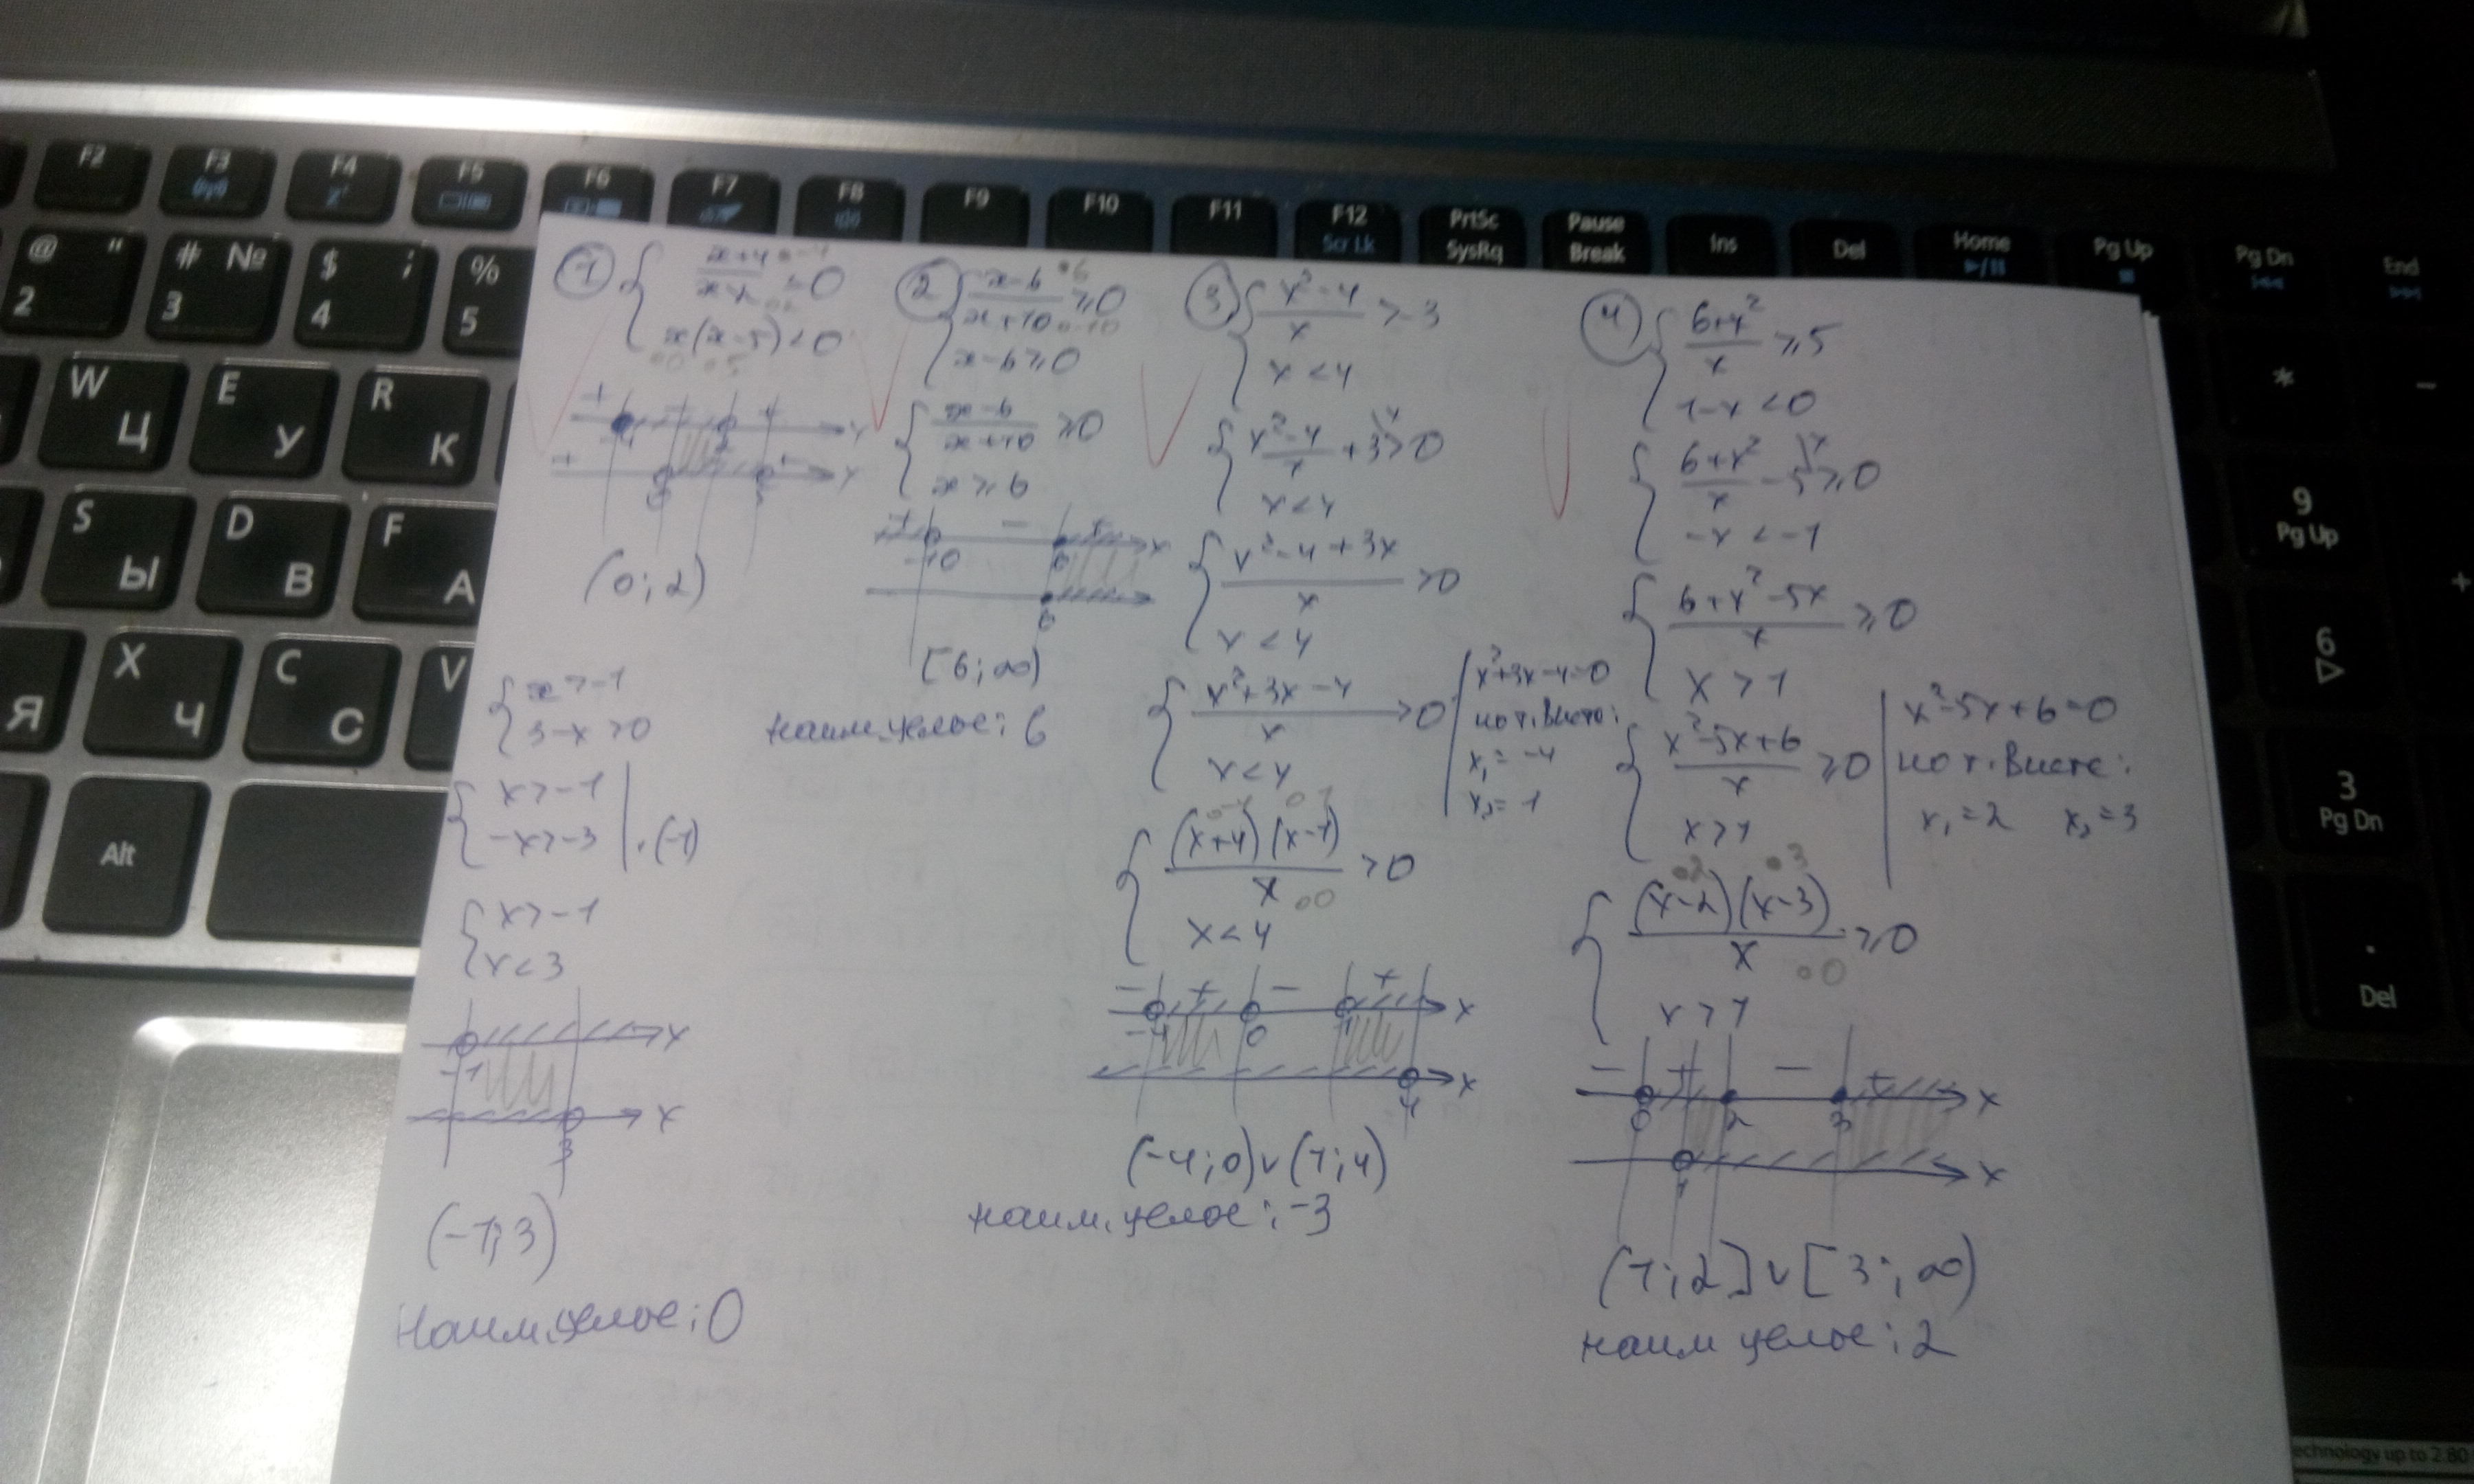 F2 F3 F4 F5 F6 F7 F8 F9 F10 F11 F12 PrtSc Pause Ins Del Home Pg Up Pg Dn End
Scr Lk SysRq Break
@ " # № $ ; %
2 3 4 5
W Ц E У R К
S Ы D В F А
Я X Ч C С V
Alt
* −
9
Pg Up
+
6
3
Pg Dn
.
Del
echnology up to 2.80
①
x(x-5)<0
(0; 2)
{ x>-1
3-x>0
{ x>-1
-x>-3 | ·(-1)
{ x>-1
x<3
-1 x
3 x
(-1; 3)
Наим. целое: 0
② { x-6/x+10 ≥0
x-6≥0
{ x-6/x+10 ≥0
x≥6
+ -10 − 6 + x
6
[6; ∞)
наим. целое: 6
③ { x²-4/x >-3
x<4
{ x²-4/x +3>0
x<4
{ x²-4+3x/x >0
x<4
{ x²+3x-4/x >0
x<4
x²+3x-4=0
по т. Виета:
x₁=-4
x₂=1
{ (x+4)(x-1)/x >0
x<4
− -4 + 0 − 1 + x
4 x
(-4; 0)∨(1; 4)
наим. целое: -3
④ { 6+x²/x ≥5
1-x<0
{ 6+x²/x -5≥0
-x<-1
{ 6+x²-5x/x ≥0
x>1
{ x²-5x+6/x ≥0
x>1
x²-5x+6=0
по т. Виете:
x₁=2 x₂=3
{ (x-2)(x-3)/x ≥0
x>1
− 0 + 2 − 3 + x
1 x
(1; 2]∨[3; ∞)
наим целое: 2